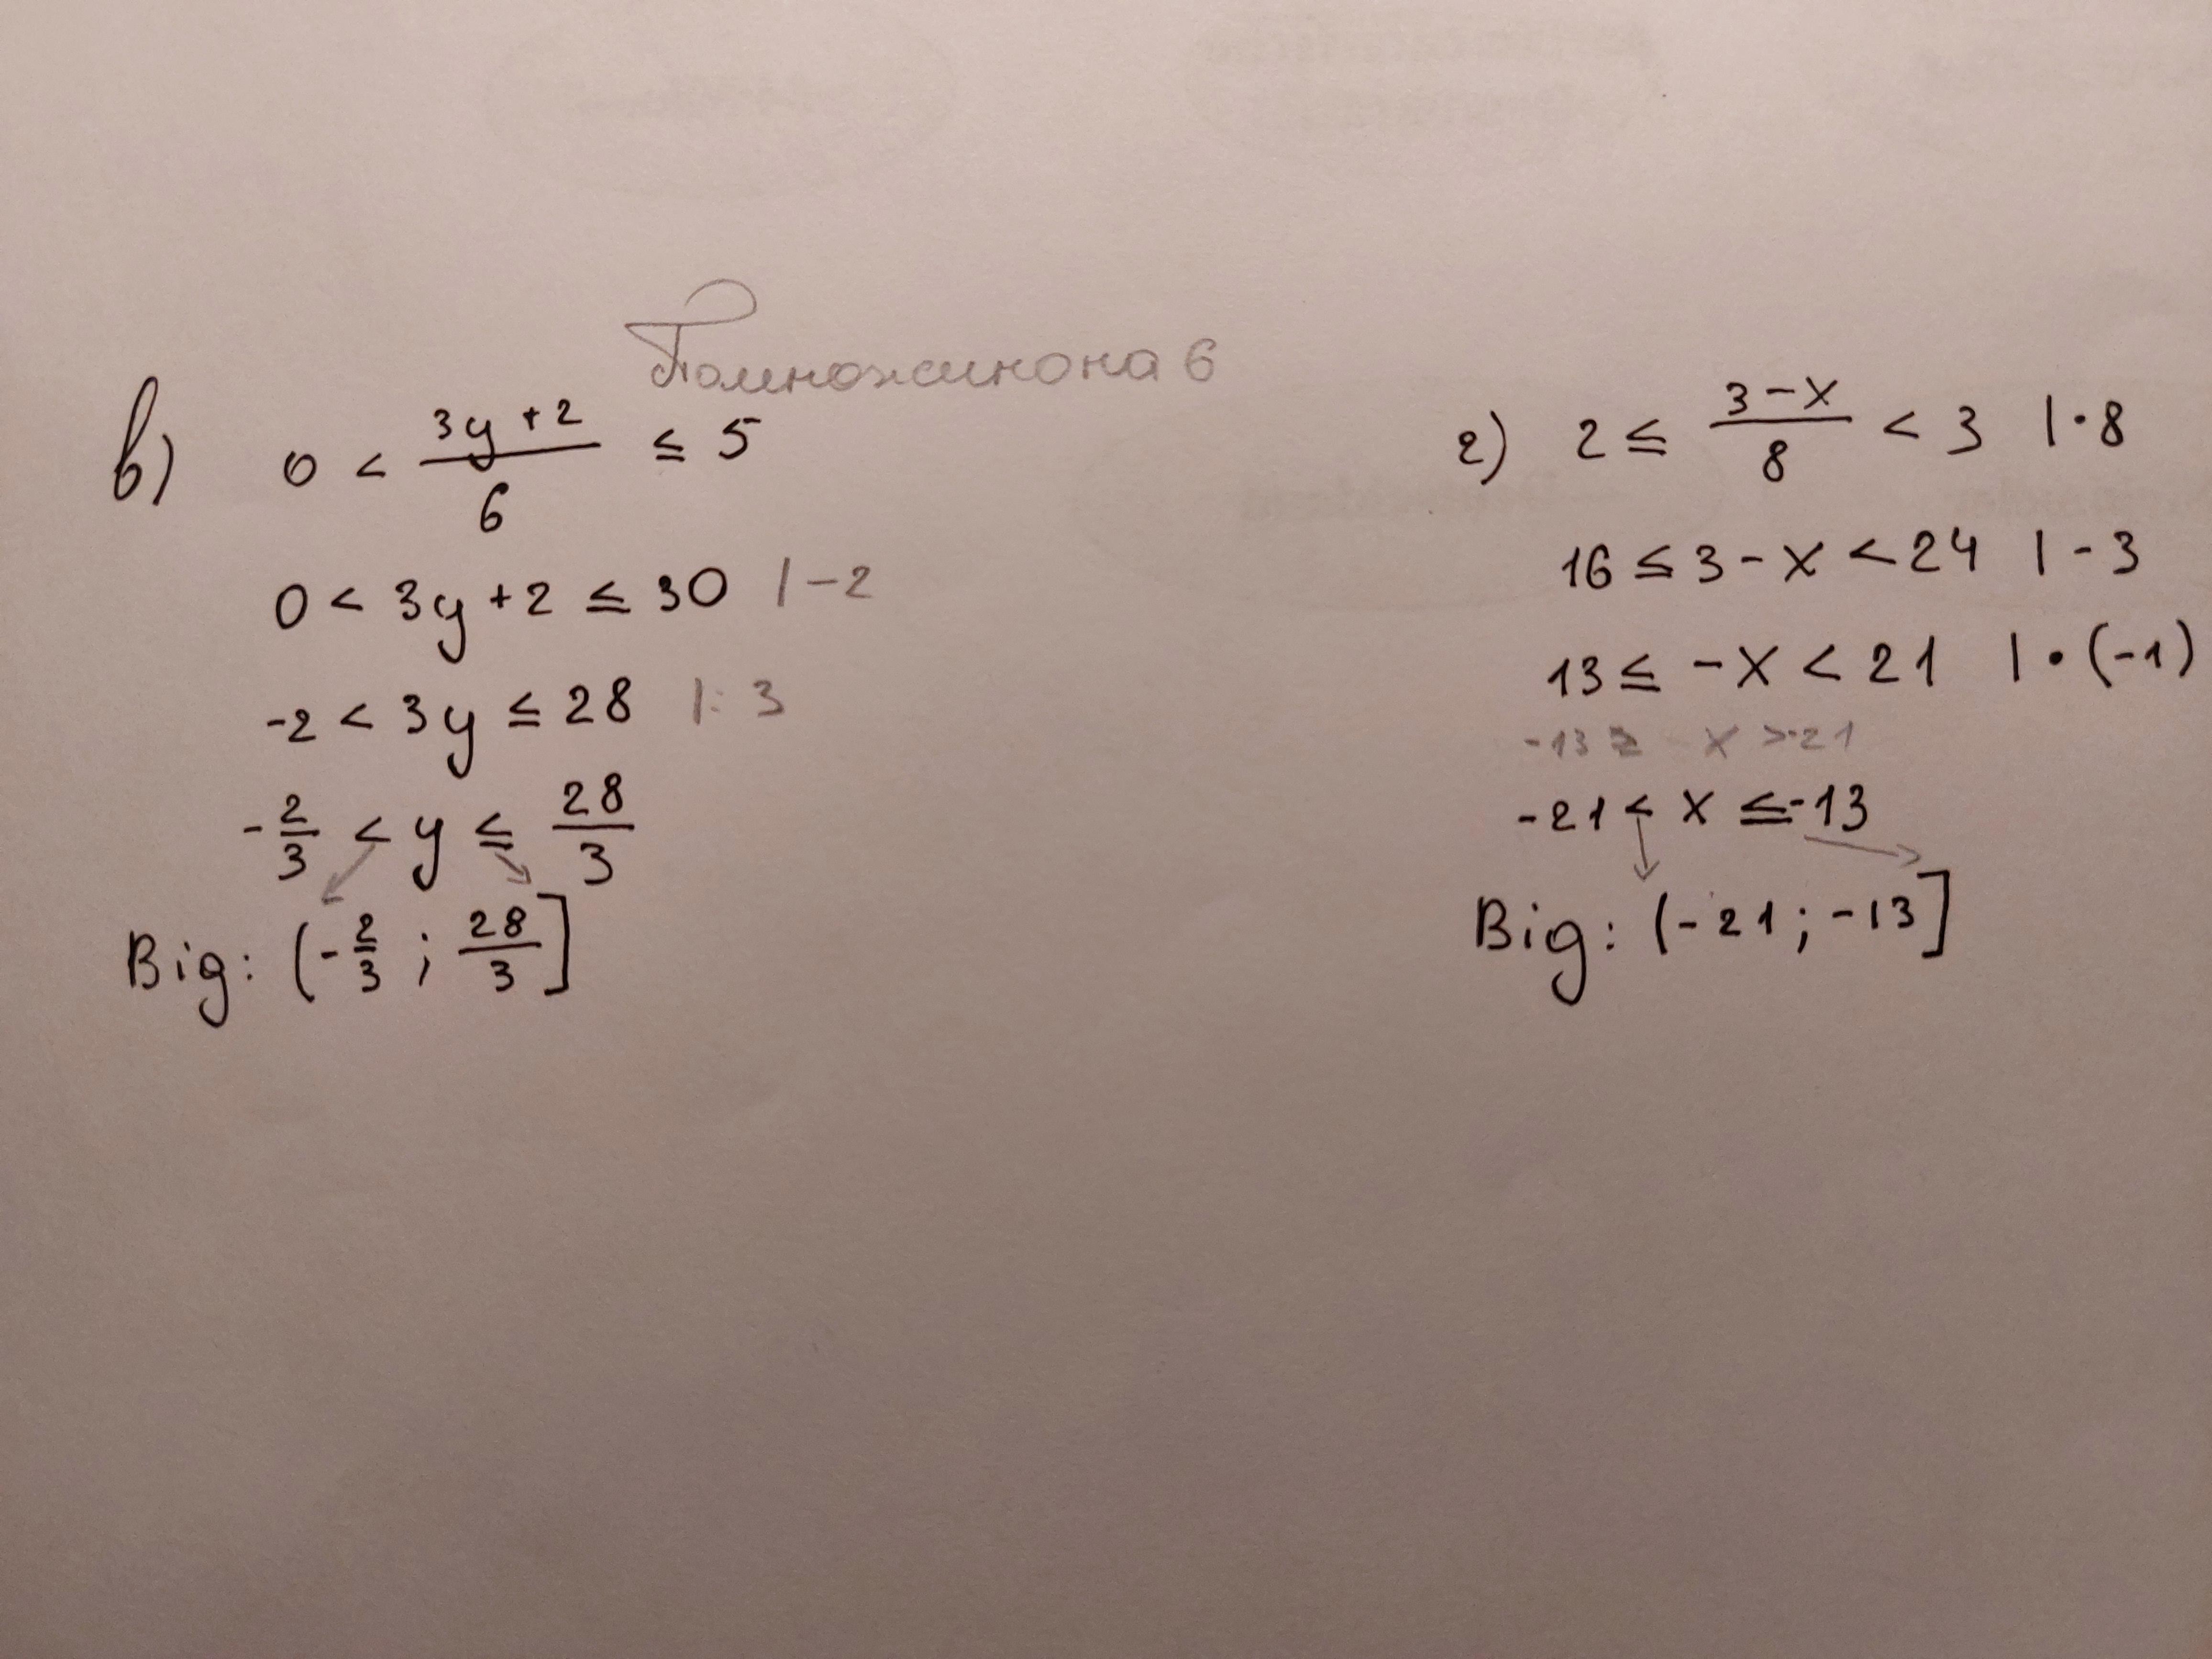 Помножимо на 6
в) 0 < (3y + 2)/6 ≤ 5
0 < 3y + 2 ≤ 30 | - 2
-2 < 3y ≤ 28 | : 3
-2/3 < y ≤ 28/3
Від: (-2/3 ; 28/3]
г) 2 ≤ (3 - x)/8 < 3 | · 8
16 ≤ 3 - x < 24 | - 3
13 ≤ -x < 21 | · (-1)
-13 ≥ x > -21
-21 < x ≤ -13
Від: (-21 ; -13]